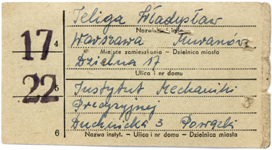 Teliga Władysław
17
Nazwisko - Imię
4
Warszawa Muranów
Miejsce zamieszkania - Dzielnica miasta
Dzielna 17
Ulica i nr domu
22
5
Instytut Mechaniki
Precyzyjnej
Duchnicka 3 Powązki
6
Nazwa instyt. - Ulica i nr domu - Dzielnica miasta